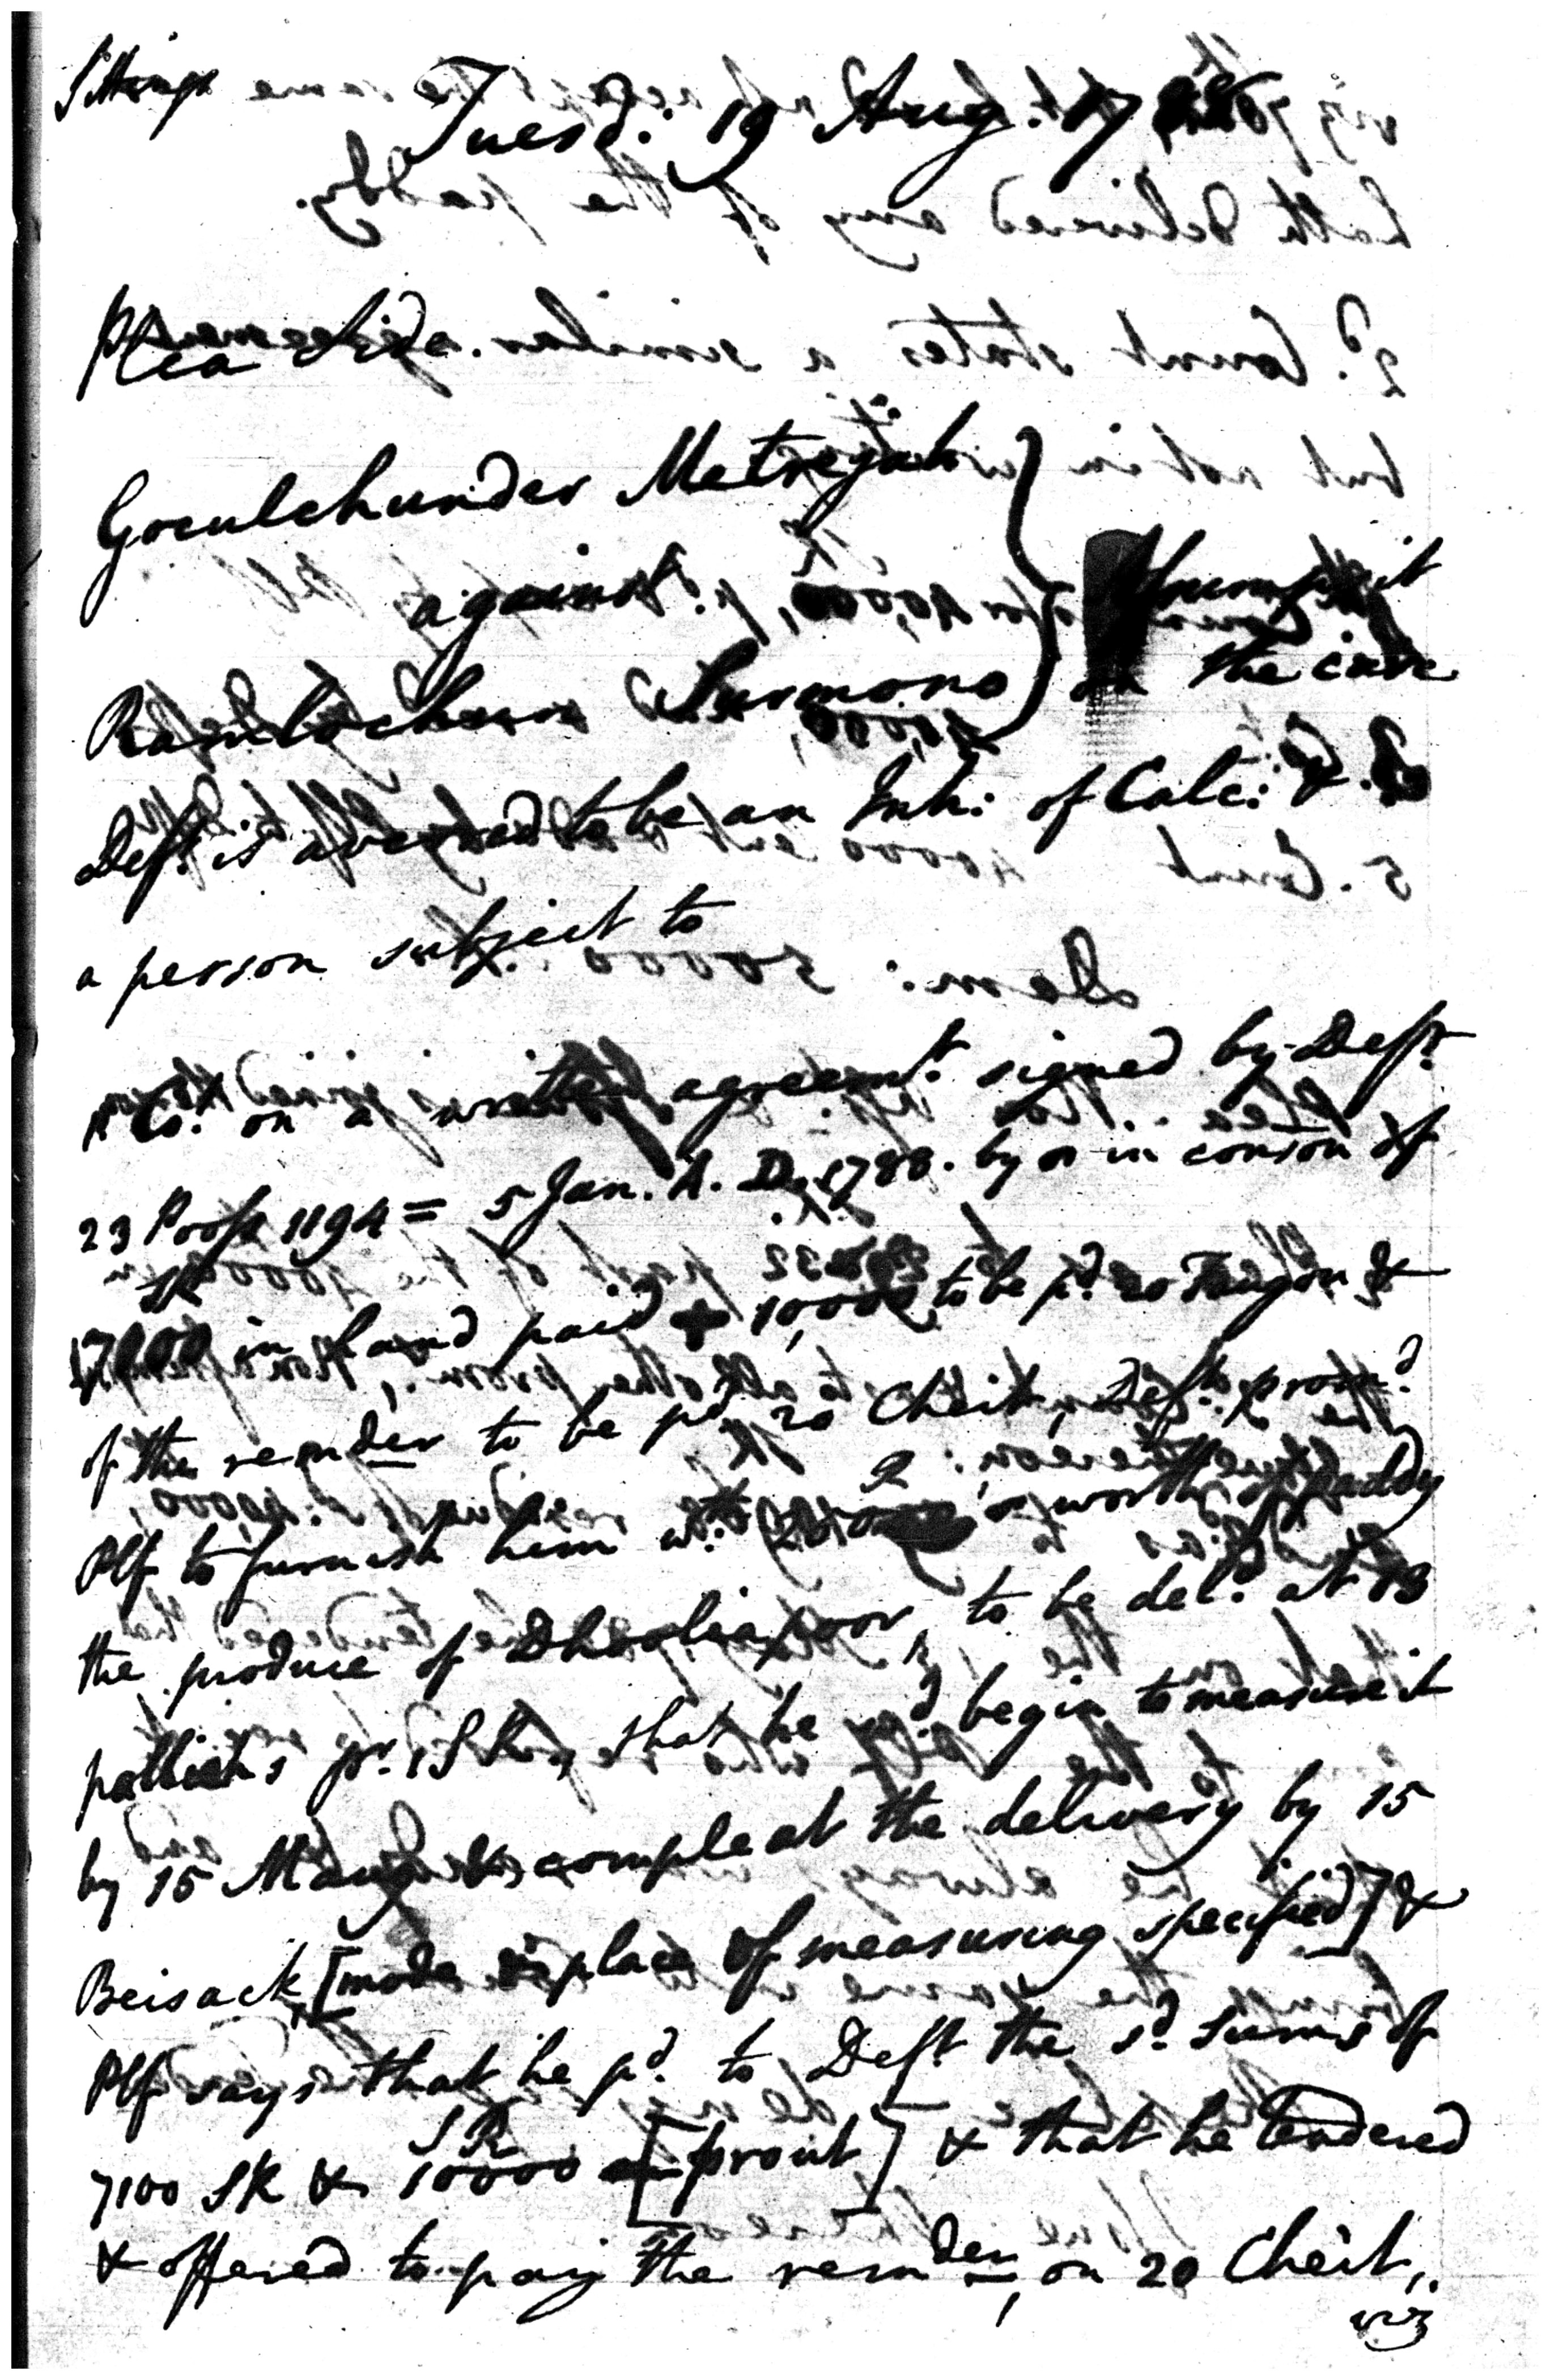 Sittings
Tuesd: 19 Aug. 1788
Plea Side.
Goculchunder Metrejah
against
Ramlochun Surmono
Trespass on the case
Deft. is averred to be an Inh: of Calc: &
a person subject to
1st Ct. on a written agreemt. signed by Deft
23 Poose 1194 = 5 Jan. A. D. 1788. by or in conson of
SR
7100 in hand paid + 10,000 to be pd. 20 &
of the remder to be pd. 20 Cheit, Deft. promd.
Plf to furnish him wth. worth of paddy
the produce of to be deld. at 13
pr. 1 SR, that he shd. begin to measure it
by 15 Maug & compleat the delivery by 15
Beisack, [mode & place of measuring specified] &
Plf says that he pd. to Deft the sd. sums of
SR
7100 SR & 10000 [prout] & that he tendered
& offered to pay the remder, on 20 Cheit,
viz